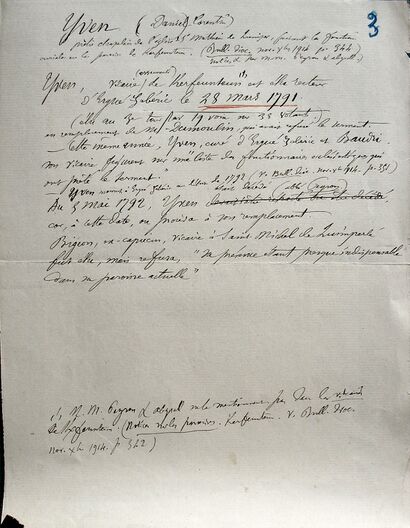 Yven (Daniel Corentin) 3
prêtre chapelain de l'église St Mathieu de Quimper, faisant la fonction
curiale en la paroisse de Kerfeunteun. (Bull. Dioc. nov. xbre 1914 p. 344
Yven, vicaire (assermenté) de Kerfeunteun (1), est élu recteur
d'Ergué Gabéric le 28 mars 1791
(élu au 3e tour par 19 voix sur 33 votants)
en remplacement de Mr Dumoulin, qui avait refusé le serment.
Cette même année, Yven, curé d'Ergué Gabéric et Beaudri,
son vicaire figurent sur une liste des fonctionnaires ecclésiastiques qui
ont prêté le serment. (V. Bull. Dioc. nov. xbre 1914. p. 351)
Yven nommé à Ergué Gabéric de 1792
Au 5 mai 1792, Yven était décédé (abbé Peyron)
car, à cette date, on procéda à son remplacement
Bigeon, ex-capucin, vicaire à Saint-Michel de Quimperlé
fut élu, mais refusa, "Sa présence étant presque indispensable
dans sa paroisse actuelle"
(1) M. M. Peyron & Abgrall ne le mentionnent pas dans les vicaires
de Kerfeunteun. (Notices sur les paroisses. Kerfeunteun. V. Bull. Dioc.
nov. xbre 1914. p 342)